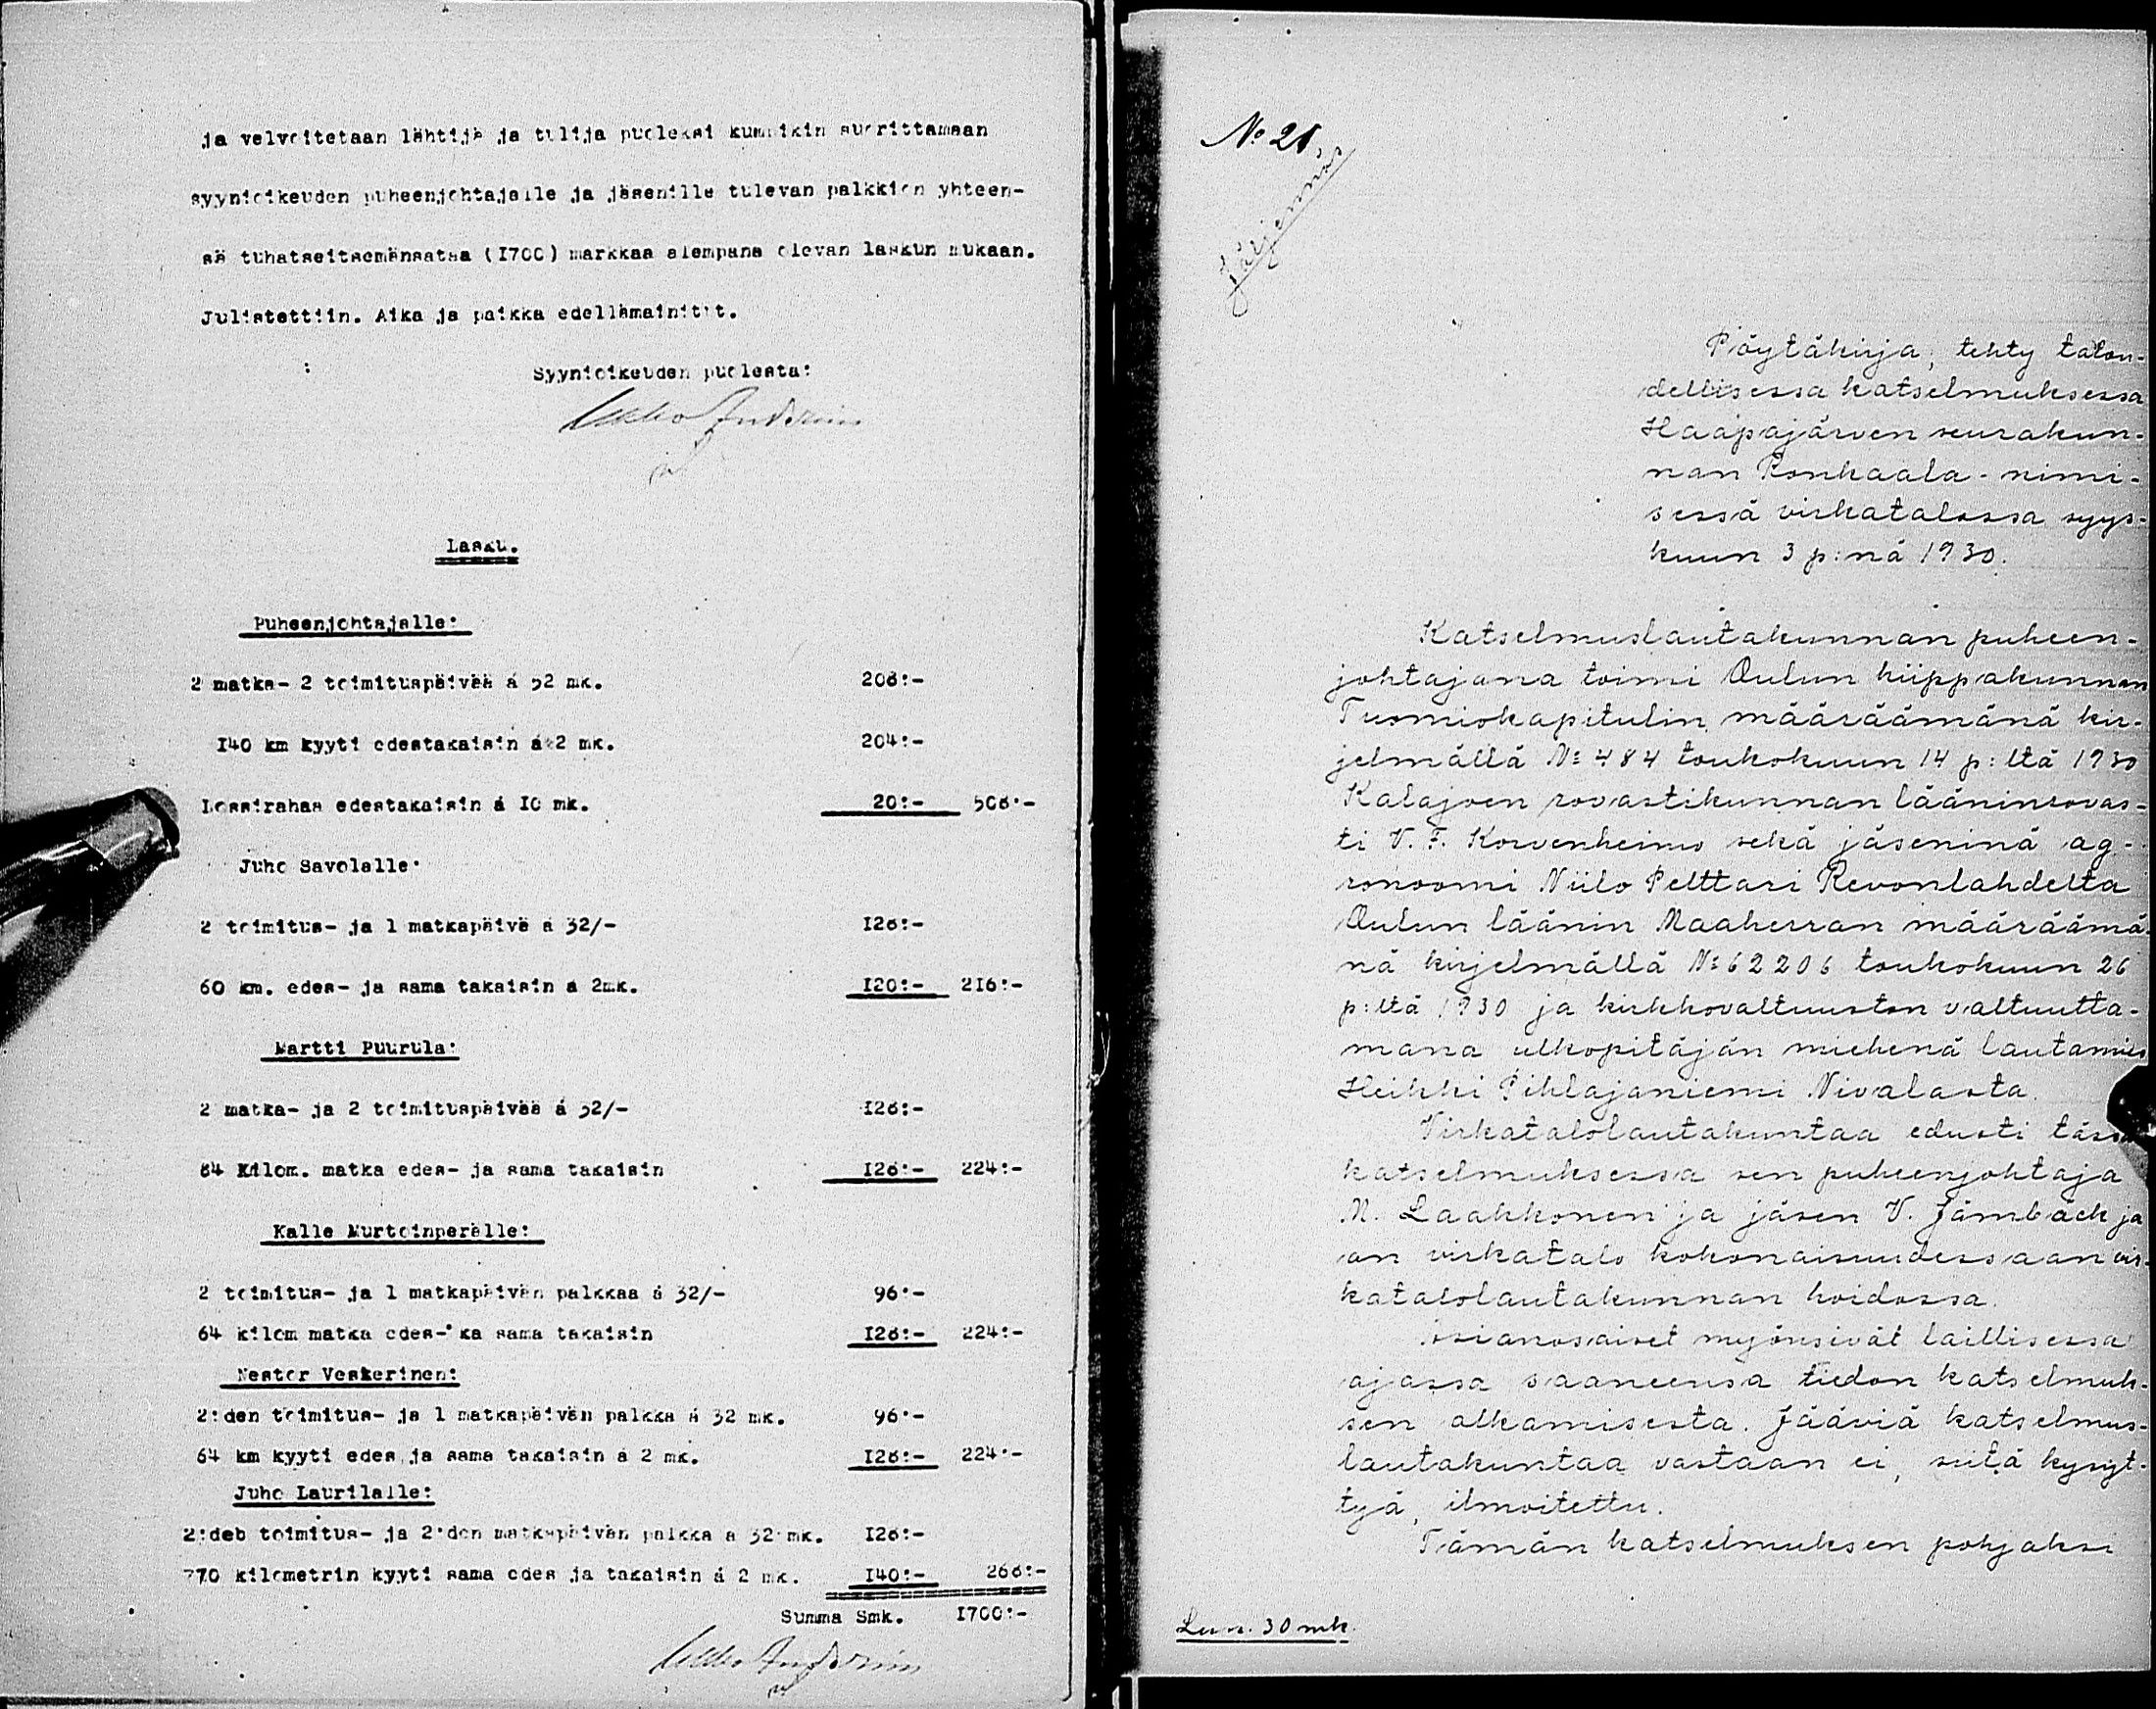 ja velvoitetaan lähtijä ja tulija puoleksi kumpikin suorittamaan
syynioikeuden puheenjohtajalle ja jäsenille tulevan palkkion yhteen-
sä tuhatseitsemänsataa (I700) markkaa alempana olevan laskun mukaan.
Julistettiin. Aika ja paikka edellämainitut.
Syynioikeuden puolesta:
Lasku.
Puheenjohtajalle:
2 matka- 2 toimituspäivää á 52 mk. 208:-
I40 km kyyti edestakaisin á 2 mk. 204:-
Lossirahaa edestakaisin á I0 mk. 20:- 508:-
Juho Savolalle:
2 toimitus- ja 1 matkapäivä á 32/- I28:-
60 km. edes- ja sama takaisin á 2mk. I20:- 2I6:-
Martti Puurula:
2 matka- ja 2 toimituspäivää á 32/- I28:-
64 Kilom. matka edes- ja sama takaisin I28:- 224:-
Kalle Murtoinperälle:
2 toimitus- ja 1 matkapäivän palkkaa á 32/- 96:-
64 kilom matka edes- ka sama takaisin I28:- 224:-
Nestor Veskerinen:
2:den toimitus- ja 1 matkapäivän palkka á 32 mk. 96:-
64 km kyyti edes ja sama takaisin á 2 mk. I28:- 224:-
Juho Laurilalle:
2:deb toimitus- ja 2:den matkapäivän palkka a 32 mk. I28:-
770 kilometrin kyyti sama edes ja takaisin á 2 mk. I40:- 268:-
Summa Smk. I700:-
No 21.
Jäljennös
Pöytäkirja, tehty talou-
dellisessa katselmuksessa
Haapajärven seurakun-
nan Ronkaala-nimi-
sessä virkatalossa syys-
kuun 3 p:nä 1930.
Katselmuslautakunnan puheen-
johtajana toimi Oulun hiippakunnan
Tuomiokapitulin määräämänä kir-
jelmällä No 484 toukokuun 14 p:ltä 1930
Kalajoen rovastikunnan lääninrovas-
ti V. F. Korvenheimo sekä jäseninä ag-
ronoomi Niilo Pelttari Revonlahdelta
Oulun läänin Maaherran määräämä-
nä kirjelmällä No 62206 toukokuun 26
p:ltä 1930 ja kirkkovaltuuston valtuutta-
mana ulkopitäjän miehenä lautamies
Heikki Pihlajaniemi Nivalasta.
Virkatalolautakuntaa edusti tässä
katselmuksessa sen puheenjohtaja
M. Laakkonen ja jäsen V. Jämbäck ja
on virkatalo kokonaisuudessaan vir-
katalolautakunnan hoidossa.
Asianosaiset myönsivät laillisessa
ajassa saaneensa tiedon katselmuk-
sen alkamisesta. Jääviä katselmus-
lautakuntaa vastaan ei, siitä kysyt-
tyä, ilmoitettu.
Tämän katselmuksen pohjaksi
Lun. 30 mk.